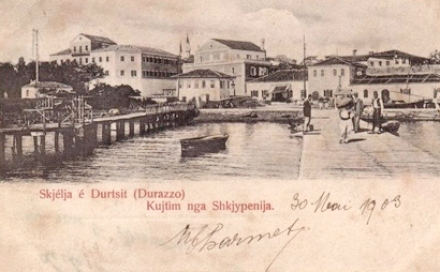 Skjélja é Durtsit (Durazzo)
Kujtim nga Shkjypenija.
30 Mai 1903